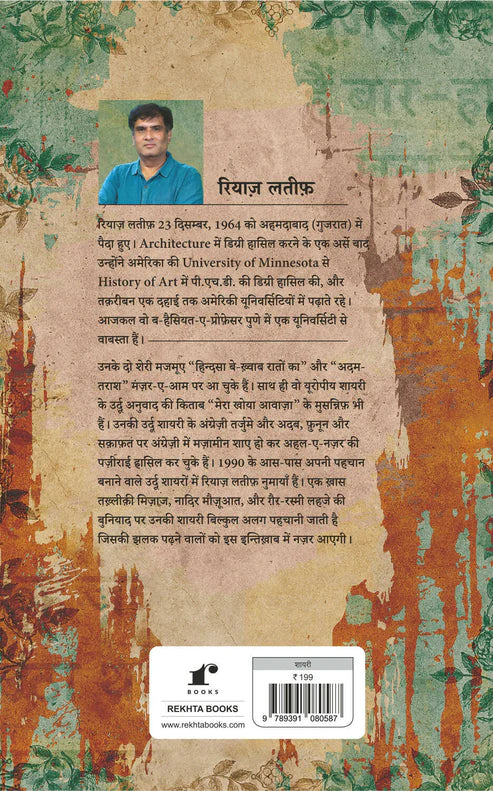 रियाज़ लतीफ़
रियाज़ लतीफ़ 23 दिसम्बर, 1964 को अहमदाबाद (गुजरात) में
पैदा हुए। Architecture में डिग्री हासिल करने के एक अर्से बाद
उन्होंने अमेरिका की University of Minnesota से
History of Art में पी.एच.डी. की डिग्री हासिल की, और
तक़रीबन एक दहाई तक अमेरिकी यूनिवर्सिटियों में पढ़ाते रहे।
आजकल वो ब-हैसियत-ए-प्रोफ़ेसर पुणे में एक यूनिवर्सिटी से
वाबस्ता हैं।
उनके दो शेरी मजमूए “हिन्दसा बे-ख़्वाब रातों का” और “अदम-
तराश” मंज़र-ए-आम पर आ चुके हैं। साथ ही वो यूरोपीय शायरी
के उर्दू अनुवाद की किताब “मेरा खोया आवाज़ा” के मुसन्निफ़ भी
हैं। उनकी उर्दू शायरी के अंग्रेज़ी तर्जुमे और अदब, फ़ुनून और
सक़ाफ़त पर अंग्रेज़ी में मज़ामीन शाए हो कर अहल-ए-नज़र की
पज़ीराई हासिल कर चुके हैं। 1990 के आस-पास अपनी पहचान
बनाने वाले उर्दू शायरों में रियाज़ लतीफ़ नुमायाँ हैं। एक ख़ास
तख़्लीक़ी मिज़ाज, नादिर मौज़ूआत, और ग़ैर-रस्मी लहजे की
बुनियाद पर उनकी शायरी बिल्कुल अलग पहचानी जाती है
जिसकी झलक पढ़ने वालों को इस इन्तिख़ाब में नज़र आएगी।
r
BOOKS
REKHTA BOOKS
www.rekhtabooks.com
शायरी
₹ 199
9 789391 080587